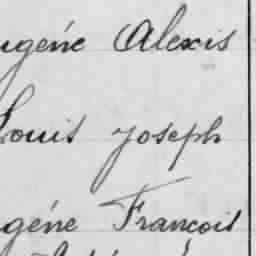 ugène Alexis
Louis Joseph
gène François